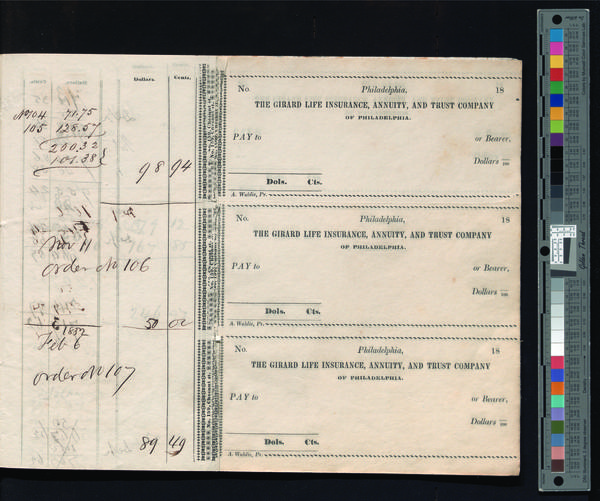 Dollars. Cents.
No 104 71.75
105 128.57
200.32
101.38
98 94
Nov 11
order No 106
50 00
1832
Feb 6
order No 107
89 49
No. Philadelphia, 18
THE GIRARD LIFE INSURANCE, ANNUITY, AND TRUST COMPANY
OF PHILADELPHIA.
PAY to or Bearer,
Dollars /100
Dols. Cts.
A. Waldie, Pr.
No. Philadelphia, 18
THE GIRARD LIFE INSURANCE, ANNUITY, AND TRUST COMPANY
OF PHILADELPHIA.
PAY to or Bearer,
Dollars /100
Dols. Cts.
A. Waldie, Pr.
No. Philadelphia, 18
THE GIRARD LIFE INSURANCE, ANNUITY, AND TRUST COMPANY
OF PHILADELPHIA.
PAY to or Bearer,
Dollars /100
Dols. Cts.
A. Waldie, Pr.